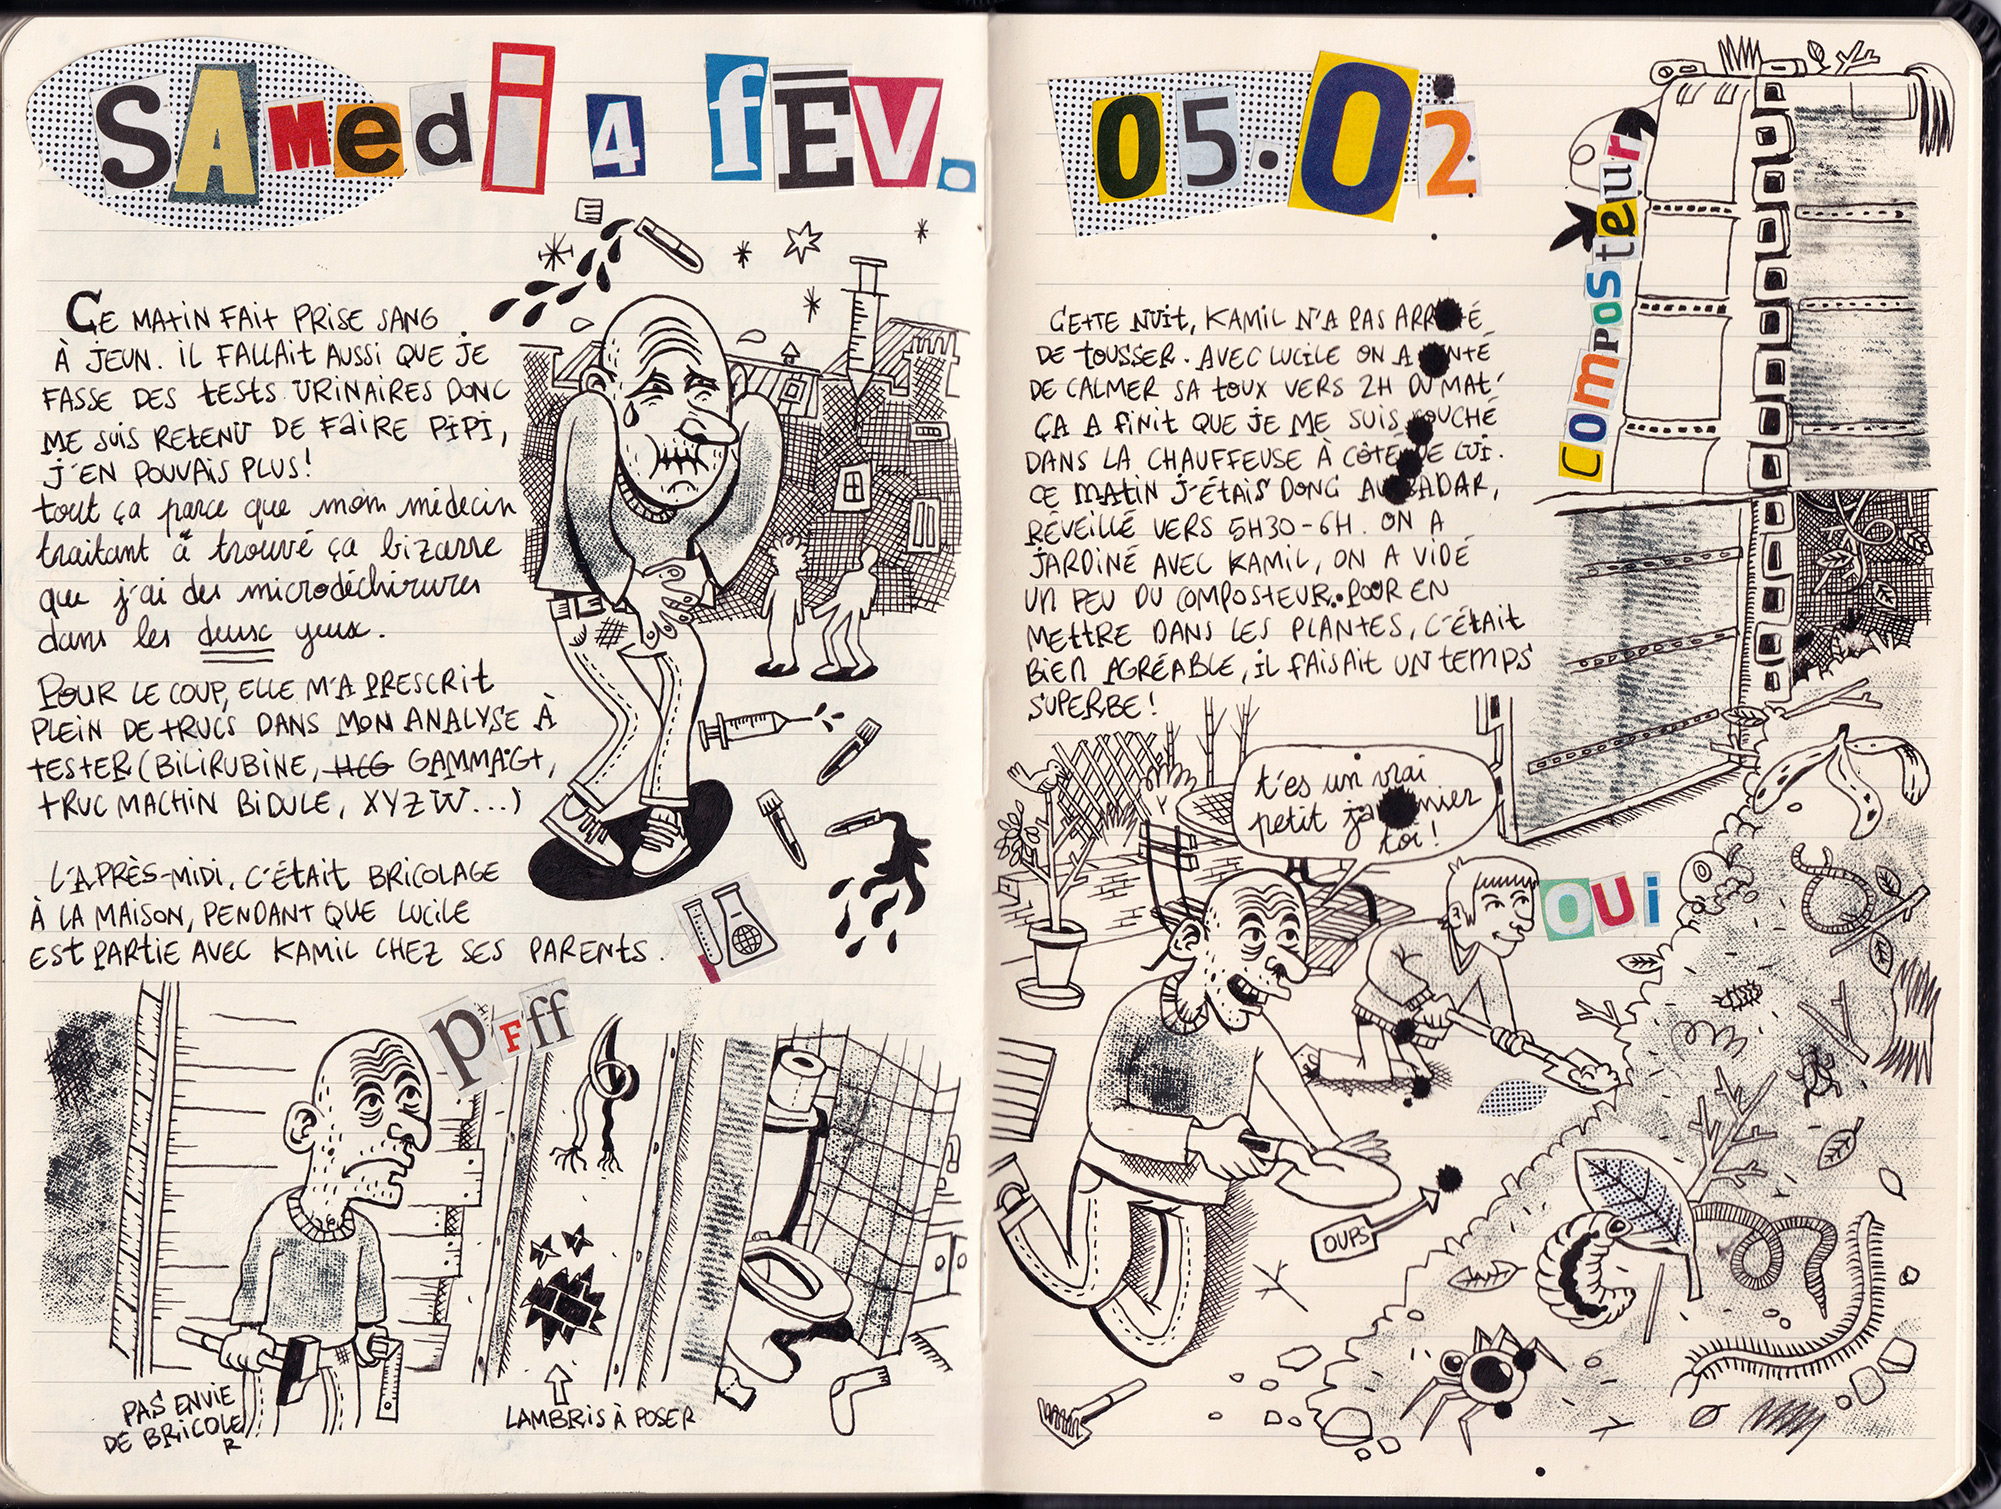 SAMedi 4 fÉV.
CE MATIN FAIT PRISE SANG
À JEUN. IL FALLAIT AUSSI QUE JE
FASSE DES TESTS URINAIRES DONC
ME SUIS RETENU DE FAIRE PIPI,
J'EN POUVAIS PLUS!
tout ça parce que mon médecin
traitant a trouvé ça bizarre
que j'ai des microdéchirures
dans les deux yeux.
POUR LE COUP, ELLE M'A PRESCRIT
PLEIN DE TRUCS DANS MON ANALYSE À
TESTER (BILIRUBINE, HCG GAMMAGT,
TRUC MACHIN BIDULE, XYZW...)
L'APRÈS-MIDI, C'ÉTAIT BRICOLAGE
À LA MAISON, PENDANT QUE LUCILE
EST PARTIE AVEC KAMIL CHEZ SES PARENTS.
Pfff
PAS ENVIE
DE BRICOLER
LAMBRIS À POSER
05.02
Composteur
CETTE NUIT, KAMIL N'A PAS ARR É
DE TOUSSER. AVEC LUCILE ON A NTÉ
DE CALMER SA TOUX VERS 2H DU MAT'
ÇA A FINIT QUE JE ME SUIS COUCHÉ
DANS LA CHAUFFEUSE À CÔTÉ DE LUI.
CE MATIN J'ÉTAIS DONC AU RADAR,
RÉVEILLÉ VERS 5H30-6H. ON A
JARDINÉ AVEC KAMIL, ON A VIDÉ
UN PEU DU COMPOSTEUR POUR EN
METTRE DANS LES PLANTES, C'ÉTAIT
BIEN AGRÉABLE, IL FAISAIT UN TEMPS
SUPERBE!
t'es un vrai
petit ja nier
toi!
OUi
OUPS